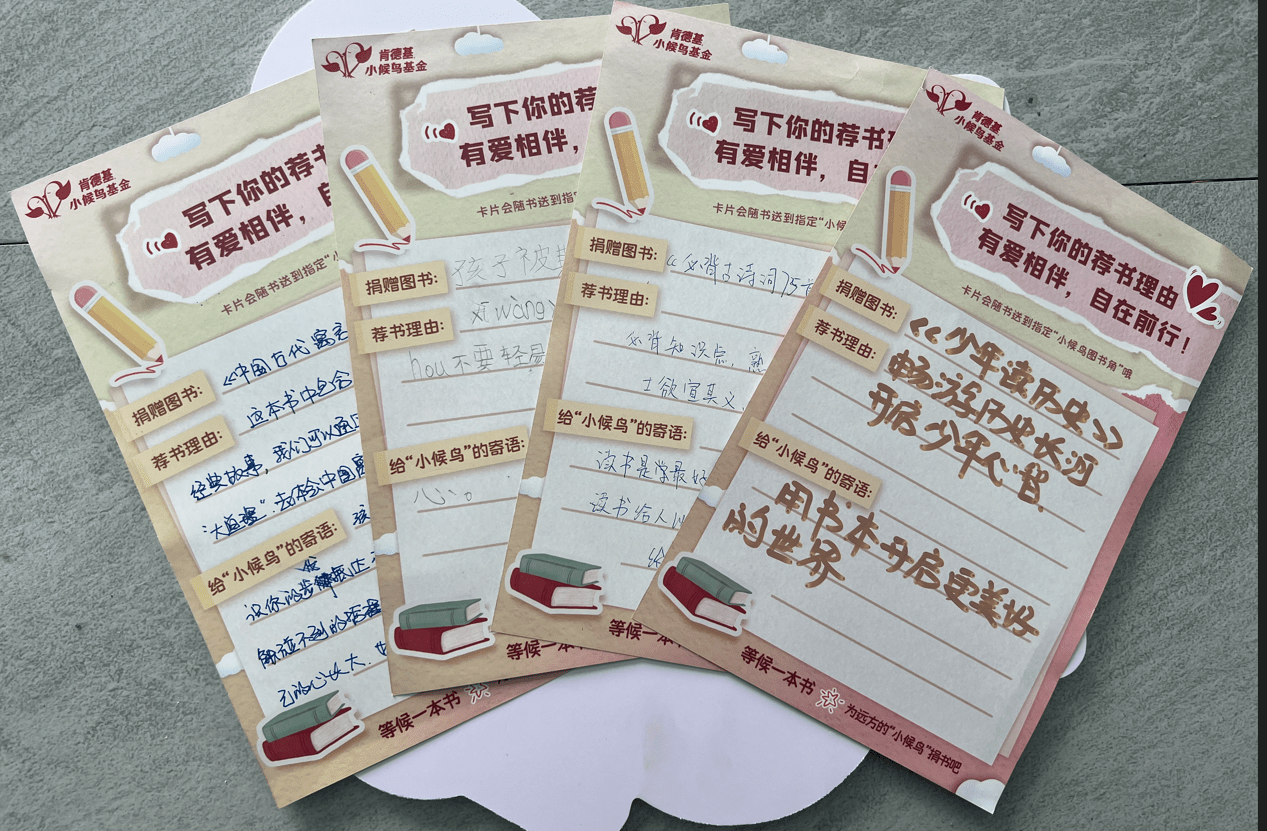 肯德基
小候鸟基金
写下你的荐书
有爱相伴,
卡片会随书送到指定“小
捐赠图书:
《中国古代寓言
荐书理由:
这本书中包含
经典故事,我们可以通过
给“小候鸟”的寄语:
等候一本书
肯德基
小候鸟基金
写下你的荐
有爱相伴,
卡片会随书送到指定
捐赠图书:
孩子被
荐书理由:
xī wàng
hou 不要轻易
给“小候鸟”的寄语:
心。
等候一本书
肯德基
小候鸟基金
写下你的荐书
有爱相伴,自
卡片会随书送到指定“小
捐赠图书:
《必背古诗词75
荐书理由:
必背知识点,熟
士欲宣其义
给“小候鸟”的寄语:
读书是学最好
读书给人
给
等候一本书
肯德基
小候鸟基金
写下你的荐书理由
有爱相伴,自在前行!
卡片会随书送到指定“小候鸟图书角”哦
捐赠图书:
《少年读历史》
荐书理由:
畅游历史长河
开启少年心智.
给“小候鸟”的寄语:
用书本开启更美好
的世界
等候一本书
为远方的“小候鸟”捐书吧